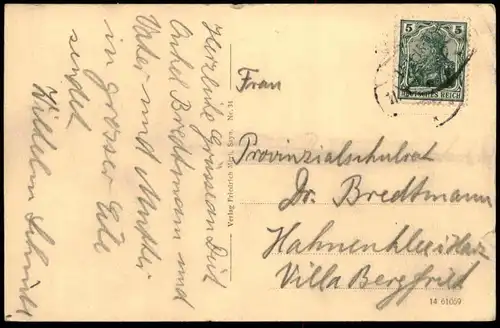 Herzliche Grüsse an Dich
Onkel Bredtmann und
Vater und Mutter
in grosser Eile
sendet
Wilhelm Schmidt
Verlag Friedrich Nr. 14
Frau
Provinzialschulrat
Dr. Bredtmann
Hahnenklee i. Harz
Villa Bergfried
14 61059
5 5
DEUTSCHES REICH